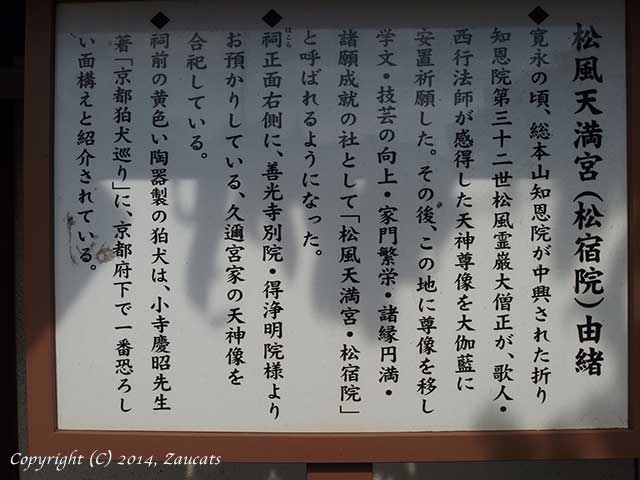 松風天満宮(松宿院)由緒
◆寛永の頃、総本山知恩院が中興された折り
知恩院第三十二世松風霊巌大僧正が、歌人・
西行法師が感得した天神尊像を大伽藍に
安置祈願した。その後、この地に尊像を移し
学文・技芸の向上・家門繁栄・諸縁円満・
諸願成就の社として「松風天満宮・松宿院」
と呼ばれるようになった。
◆祠正面右側に、善光寺別院・得浄明院様より
ほこら
お預かりしている、久邇宮家の天神像を
合祀している。
◆祠前の黄色い陶器製の狛犬は、小寺慶昭先生
著「京都狛犬巡り」に、京都府下で一番恐ろし
い面構えと紹介されている。
Copyright (C) 2014, Zaucats